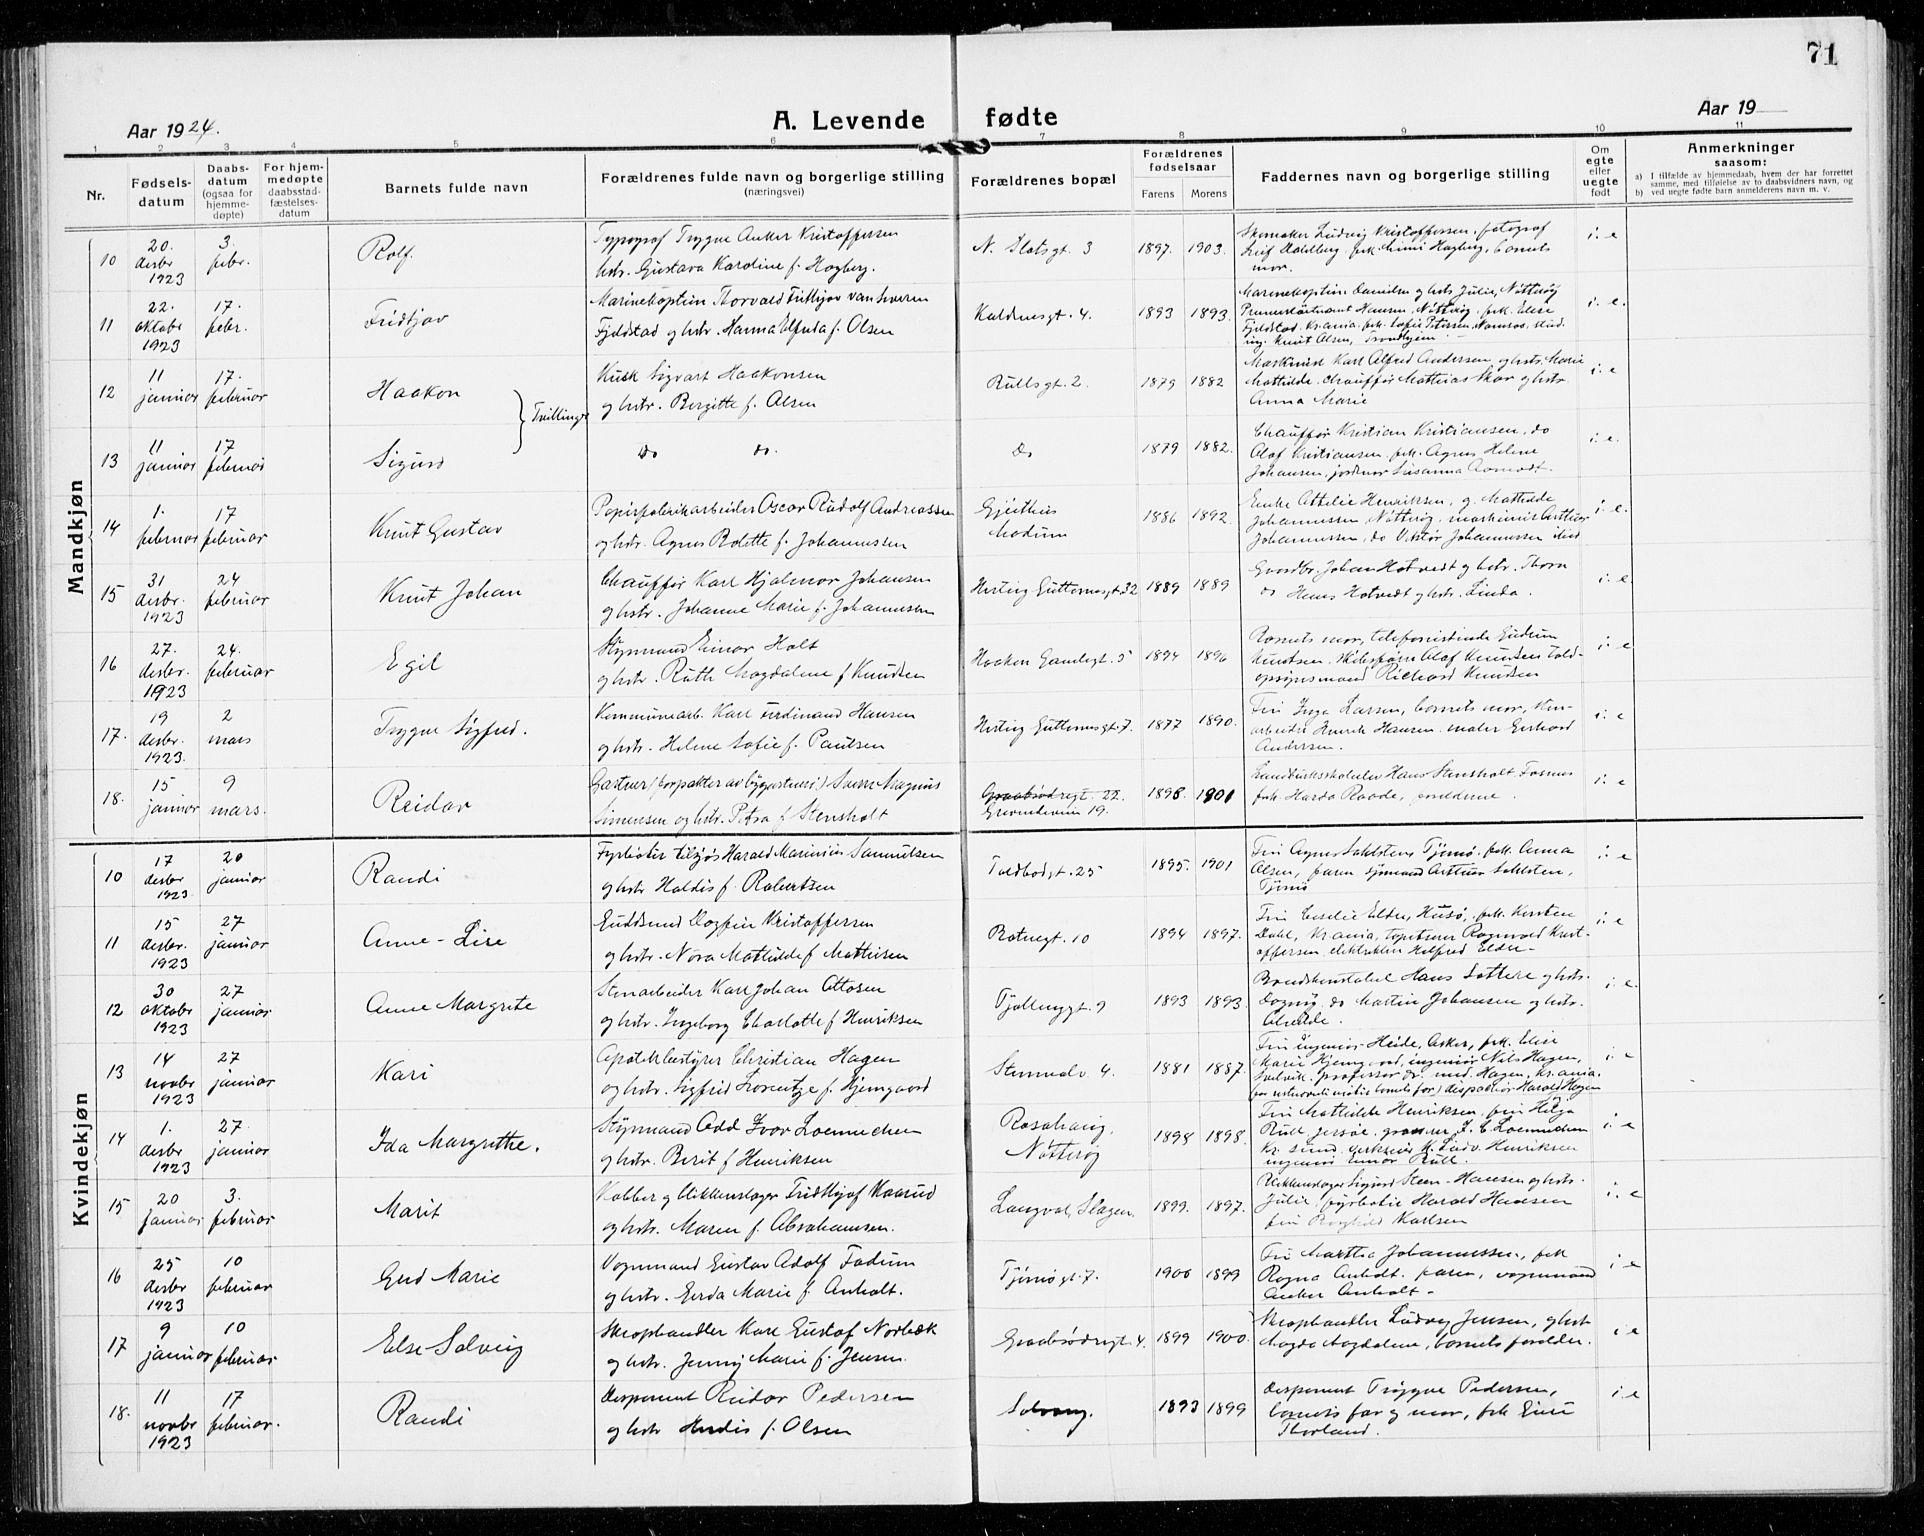 71
Aar 1924.
A. Levende fødte
Aar 19
1 2 3 4 5 6 7 8 9 10 11
Nr.
Fødsels-
datum
Daabs-
datum
(ogsaa for
hjemme-
døpte)
For hjem-
medøpte
daabsstad-
fæstelses-
datum
Barnets fulde navn
Forældrenes fulde navn og borgerlige stilling
(næringsvei)
Forældrenes bopæl
Forældrenes
fødselsaar
Farens Morens
Faddernes navn og borgerlige stilling
Om
egte
eller
uegte
født
Anmerkninger
saasom:
a) I tilfælde av hjemmedaab, hvem der har forrettet
samme, med tilføielse av to daabsvidners navn, og
b) ved uegte fødte barn anmelderens navn m. v.
Mandkjøn
10 20. desbr 1923 3. febr. Rolf.
Typograf Trygve Anker Kristoffersen
hstr. Gustava Karoline f. Hagberg.
N. Slotsgt. 3 1897. 1903.
Skomaker Ludvig Kristoffersen, fotograf
Leif Dahlberg, frk. Mimi Hagberg, barnets
mor.
i. e
11 22. oktobr 1923 17. febr. Fridtjov
Marinekaptein Thorvald Frithjov van Severen
Fjeldstad og hstr. Hanna Elfrida f. Olsen
Kaldnesgt. 4. 1893 1893.
Marinekaptein Danielsen og hstr Julie, Nøtterøy
Premierløitnant Hansen, Nøtterøy. frk. Elise
Fjeldstad, Kr.ania. frk. Sofie Petersen, Namsos, stud.
ing. Knut Olsen, Trondhjem
i. e.
12 11 januar 17. februar Haakon } Tvillinger
Kusk Sigvart Haakonsen
og hstr. Bergitte f. Olsen
Rullsgt. 2. 1879 1882
Maskinist Karl Alfred Andersen, og hstr. Marie
Mathilde. Chauffør Mathias Skar og hstr.
Anna Marie
i. e
13 11 januar 17 februar Sigurd
Do do.
Do 1879 1882.
Chauffør Kristian Kristiansen, do
Olaf Kristiansen. frk. Agnes Helene
Johansen, jordmor Susanna Aamodt.
i. e.
14 1. februar 17 februar Knut Gustav
Papirfabrikarbeider Oscar Rudolf Andreassen
og hstr. Agnes Bolette f. Johannessen
Gjeithus
Modum
1886 1892.
Enke Ottelie Henriksen, g. Mathilde
Johannessen, Nøtterøy, maskinist Arthur
Johannessen, do Viktor Johannessen
i. e.
15 31 desbr. 1923 24 februar Knut Johan
Chauffør Karl Hjalmar Johansen
og hstr. Johanne Marie f. Johannesen
Hertug Guttormsgt. 32 1889 1889
Gaardbr. Johan Hotvedt og hstr. Thora
do Hans Hotvedt og hstr. Linda.
i. e
16 27. desbr. 1923 24. februar Egil
Styrmand Einar Holt
og hstr. Ruth Magdalene f Knudsen
Haakon Gamlesgt. 5 1894 1896
Barnets mor, telefonistinde Gudrun
Knutsen. Skibsfører Olaf Knudsen Told-
opsynsmand Richard Knudsen
i. e
17. 19 desbr. 1923. 2 mars Trygve Sigfred.
Kommunearb. Karl Ferdinand Hansen
og hstr. Helene Sofie f. Paulsen
Hertug Guttormsgt. 7. 1877 1890.
Fru Inga Larsen, barnets mor, sten-
arbeider Henrik Hansen. maler Gerhard
Andersen.
i. e
18. 15 januar 9 mars. Reidar
Gartner (forpakter av bygartneri) Svein Magnus
Simensen og hstr. Petra f Stensholt
Graabrødregt. 22.
Grevindeveien 19.
1898. 1901
Landbruksskoleelev Hans Stensholt. Fosnes
frk. Harda Raade, forældrene.
i. e
Kvindekjøn
10 17 desbr 1923 20 januar Randi
Fyrbøter tilsjøs Harald Marinius Samuelsen
og hstr Haldis f. Robertsen
Toldbodgt. 25 1895. 1901
Fru Agnes Sahlsten Tjømø. frk. Anna
Olsen, faren sjømand Arthur Sahlsten,
Tjømø
i. e
11 15 desbr. 1923 27 januar Anne-Lise
Guldsmed Dagfin Kristoffersen
og hstr. Nora Mathilde f Mathisen
Botnegt. 10 1894 1897.
Fru Cecelie Elder, Husø, frk. Kirsten
Dahl, Kr.ania, tapetserer Ragnvald Krist-
offersen, elektriker Helfred Elder-
i. e
12 30 oktobr 1923 27 januar Anne Margrete
Stenarbeider Karl Johan Ottosen
og hstr. Ingeborg Charlotte f Henriksen
Tjøllinggt. 9 1893 1893.
Brandkonstabel Hans Sættere og hstr.
Dagny. do Martin Johansen og hstr.
Alvilde.
i. e.
13 14 novbr 1923 27 januar Kari
Apotekbestyrer Christian Hagen
og hstr. Sigfrid Lorentze f. Hjemgaard
Stenmalv. 4. 1881 1887.
Fru Ingeniør Heide, Asker, frk. Elise
Marie Hjemgaard, ingeniør Nils Hagen,
Svelvik. professor dr. med. Hagen, Kr.ania.
dispachør Harald Hagen
i. e
14 1. desbr 1923 27. januar Ida Margrethe.
Styrmand Odd Ivar Loennechen
og hstr. Berit f Henriksen
Rosahaug,
Nøtterøy
1898 1898.
Fru Mathilde Henriksen. frøi Helga
Rull Jersøe. grosserer J. C Loennechen
Kr.sund. Ludv. Henriksen
ingeniør Einar Rull.
i. e
15 20 januar 3. februar Marit
Kobber og blikkenslager Fridthjof Kaarud
og hstr. Maren f. Abrahamsen.
Langvol, Slagen. 1899. 1897.
Blikkenslager Sigurd Steen-Hansen og hstr.
Julie, fyrbøter Harald Hansen
frøi Borghild Karlsen
i. e
16 25 desbr 1923 10 februar Gerd Marie
Vognmand Gustav Adolf Fadum
og hstr. Gerda Marie f. Anholt.
Tjømøgt. 7. 1900 1899
Fru Martha Johannessen, frk
Ragna Anholt. faren, vognmand
Anker Anholt-
i e
17 9 januar 10 februar Else Solveig
Skraphandler Karl Gustaf Norbæk
og hstr. Jenny Marie f. Jensen.
Graabrødregt 4. 1899 1900.
Skraphandler Ludvig Jensen, og hstr
Magda Magdalene, barnets forældre.
i e
18. 11 novbr 1923 17 februar. Randi
Disponent Reidar Pedersen
og hstr Herdis f. Olsen
Solvang. 1893 1899
Disponent Trygve Pedersen,
barnets far og mor, frk Else
Thorland.
i. e